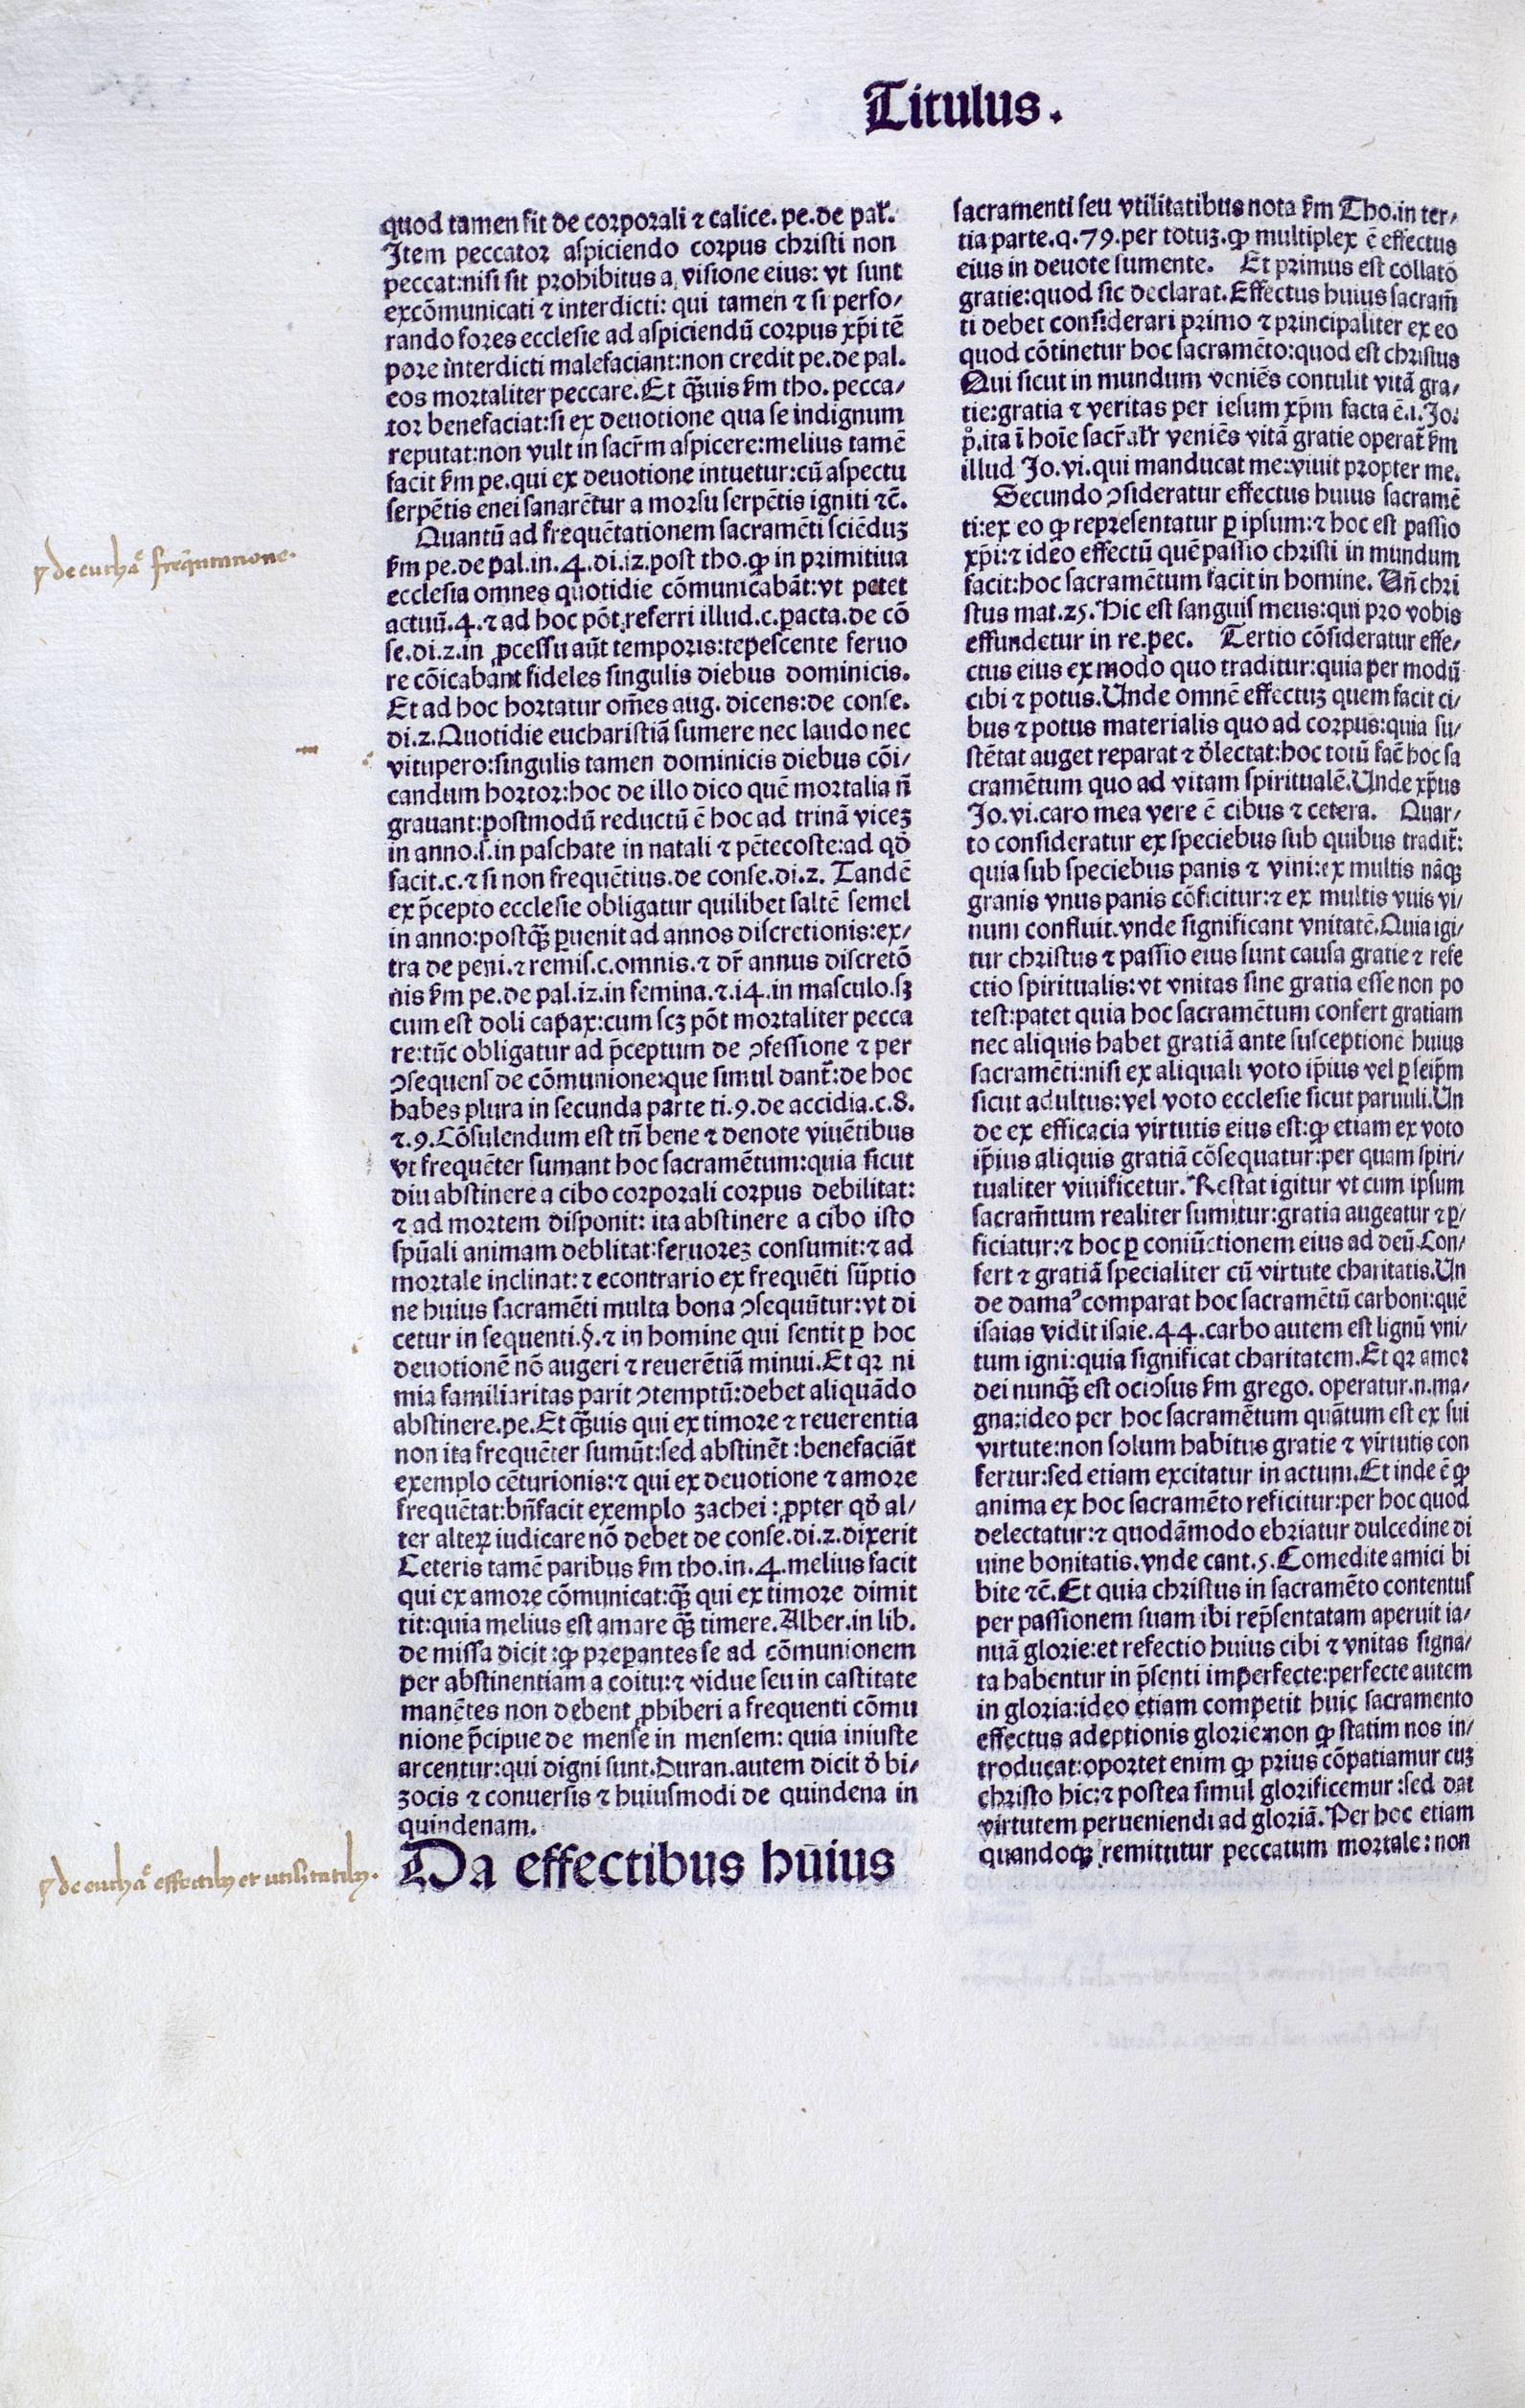 Titulus.
quod tamen fit de corporali ⁊ calice. pe. de pal̕.
Item peccator aspiciendo corpus christi non
peccat: nisi sit prohibitus a visione eius: vt sunt
excōmunicati ⁊ interdicti: qui tamen ⁊ si perfo/
rando fores ecclesie ad aspiciendū corpus xp̄i tē
pore interdicti malefaciant: non credit pe. de pal.
eos mortaliter peccare. Et qꝫuis ẜm tho. pecca/
tor benefaciat: si ex deuotione qua se indignum
reputat: non vult in sacr̄m aspicere: melius tamē
facit ẜm pe. qui ex deuotione intuetur: cū aspectu
serpētis enei sanarētur a morsu serpētis igniti ⁊c̄.
Quantū ad frequētationem sacramēti sciēduꝫ
ẜm pe. de pal. in. 4. di. 12. post tho. ꝙ in primitiua
ecclesia omnes quotidie cōmunicabāt: vt patet
actuū. 4. ⁊ ad hoc pōt referri illud. c. ꝑacta. de cō
se. di. 2. in ꝓcessu aūt temporis: tepescente feruo
re cōicabant fideles singulis diebus dominicis.
Et ad hoc hortatur om̄es aug. dicens: de conse.
di. 2. Quotidie eucharistiā sumere nec laudo nec
vitupero: singulis tamen dominicis diebus cōi/
candum hortor: hoc de illo dico quē mortalia nō
grauant: postmodū reductū ē hoc ad trinā viceꝫ
in anno. s. in paschate in natali ⁊ pētecoste: ad qđ
facit. c. ⁊ si non frequētius. de conse. di. 2. Tandē
ex p̄cepto ecclesie obligatur quilibet saltē semel
in anno: postqꝫ ꝑuenit ad annos discretionis: ex/
tra de peni. ⁊ remis. c. omnis. ⁊ dr̄ annus discretō
nis ẜm pe. de pal. 12. in femina. ⁊. 14. in masculo. sꝫ
cum est doli capax: cum scꝫ pōt mortaliter pecca
re: tūc obligatur ad p̄ceptum de ꝯfessione ⁊ per
ꝯsequens de cōmunione: que simul dant̄: de hoc
habes plura in secunda parte ti. 9. de accidia. c. 8.
⁊. 9. Cōsulendum est tn̄ bene ⁊ denote viuētibus
vt frequēter sumant hoc sacramētum: quia sicut
diu abstinere a cibo corporali corpus debilitat:
⁊ ad mortem disponit: ita abstinere a cibo isto
spūali animam deblitat: feruoreꝫ consumit: ⁊ ad
mortale inclinat: ⁊ econtrario ex frequēti sūptio
ne huius sacramēti multa bona ꝯsequūtur: vt di
cetur in sequenti. §. ⁊ in homine qui sentit ꝑ hoc
deuotionē nō augeri ⁊ reuerētiā minui. Et qꝛ ni
mia familiaritas parit ꝯtemptū: debet aliquādo
abstinere. pe. Et qꝫuis qui ex timore ⁊ reuerentia
non ita frequēter sumūt: sed abstinēt: benefaciāt
exemplo cēturionis: ⁊ qui ex deuotione ⁊ amore
frequētat: bn̄facit exemplo zachei: ꝓpter qđ al/
ter alterꝫ iudicare nō debet de conse. di. 2. dixerit
Ceteris tamē paribus ẜm tho. in. 4. melius facit
qui ex amore cōmunicat: qꝫ qui ex timore dimit
tit: quia melius est amare qꝫ timere. Alber. in lib.
de missa dicit: ꝙ preparantes se ad cōmunionem
per abstinentiam a coitu: ⁊ vidue seu in castitate
manētes non debent ꝓhiberi a frequenti cōmu
nione p̄cipue de mense in mensem: quia iniuste
arcentur: qui digni sunt. Duran. autem dicit đ bi/
zocis ⁊ conuersis ⁊ huiusmodi de quindena in
quindenam.
Da effectibus huius
sacramenti seu vtilitatibus nota ẜm Tho. in ter/
tia parte. q. 79. per totuꝫ. ꝙ multiplex ē effectus
eius in deuote sumente. Et primus est collatō
gratie: quod sic declarat. Effectus huius sacram̄
ti debet considerari primo ⁊ principaliter ex eo
quod cōtinetur hoc sacramēto: quod est christus
Qui sicut in mundum veniēs contulit vitā gra/
tie: gratia ⁊ veritas per iesum xp̄m facta ē. i. Jo.
p̊. ita ī hoīe sacr̄alr̄ veniēs vitā gratie operat̄ ẜm
illud Jo. vi. qui manducat me: viuit propter me.
Secundo ꝯsideratur effectus huius sacramē
ti: ex eo ꝙ representatur ꝑ ipsum: ⁊ hoc est passio
xp̄i: ⁊ ideo effectū quē passio christi in mundum
facit: hoc sacramētum facit in homine. Un̄ chri
stus mat. 25. Hic est sanguis meus: qui pro vobis
effundetur in re. pec. Tertio cōsideratur effe/
ctus eius ex modo quo traditur: quia per modū
cibi ⁊ potus. Unde omnē effectuꝫ quem facit ci/
bus ⁊ potus materialis quo ad corpus: quia su/
stētat auget reparat ⁊ đlectat: hoc totū fac̄ hoc sa
cramētum quo ad vitam spiritualē. Unde xp̄us
Jo. vi. caro mea vere ē cibus ⁊ cetera. Quar/
to consideratur ex speciebus sub quibus tradit̄:
quia sub speciebus panis ⁊ vini: ex multis nāqꝫ
granis vnus panis cōficitur: ⁊ ex multis vuis vi/
num confluit. vnde significant vnitatē. Quia igi/
tur christus ⁊ passio eius sunt causa gratie ⁊ refe
ctio spiritualis: vt vnitas sine gratia esse non po
test: patet quia hoc sacramētum confert gratiam
nec aliquis habet gratiā ante susceptionē huius
sacramēti: nisi ex aliquali voto ip̄ius vel ꝑ seip̄m
sicut adultus: vel voto ecclesie sicut paruuli. Un
de ex efficacia virtutis eius est: ꝙ etiam ex voto
ip̄ius aliquis gratiā cōsequatur: per quam spiri/
tualiter viuificetur. Restat igitur vt cum ipsum
sacram̄tum realiter sumitur: gratia augeatur ⁊ ꝑ/
ficiatur: ⁊ hoc ꝑ coniūctionem eius ad deū. Con/
fert ⁊ gratiā specialiter cū virtute charitatis. Un
de damaꝰ comparat hoc sacramētū carboni: quē
isaias vidit isaie. 44. carbo autem est lignū vni/
tum igni: quia significat charitatem. Et qꝛ amor
dei nunqꝫ est ociosus ẜm grego. operatur. n. ma/
gna: ideo per hoc sacramētum quātum est ex sui
virtute: non solum habitus gratie ⁊ virtutis con
fertur: sed etiam excitatur in actum. Et inde ē ꝙ
anima ex hoc sacramēto reficitur: per hoc quod
delectatur: ⁊ quodāmodo ebriatur dulcedine di
uine bonitatis. vnde cant. 5. Comedite amici bi
bite ⁊c̄. Et quia christus in sacramēto contentus
per passionem suam ibi rep̄sentatam aperuit ia/
nuā glorie: et refectio huius cibi ⁊ vnitas signa/
ta habentur in p̄senti imperfecte: perfecte autem
in gloria: ideo etiam competit huic sacramento
effectus adeptionis glorie: non ꝙ statim nos in/
troducat: oportet enim ꝙ prius cōpatiamur cuꝫ
christo hic: ⁊ postea simul glorificemur: sed dat
virtutem perueniendi ad gloriā. Per hoc etiam
quandoqꝫ remittitur peccatum mortale: non
de euchā frequentatione.
de euchā effectibꝫ et utilitatibꝫ.